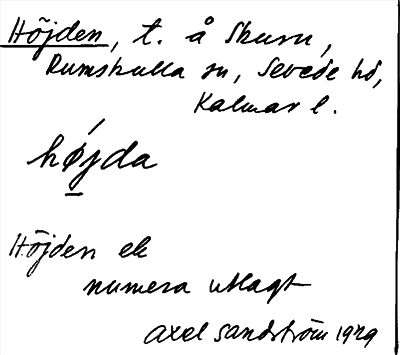 Höjden, t. å Skuru,
Rumskulla sn, Sevede hd,
Kalmar l.
hǿ̱jda
Höjden ek
numera utlagt
Axel Sandström 1929